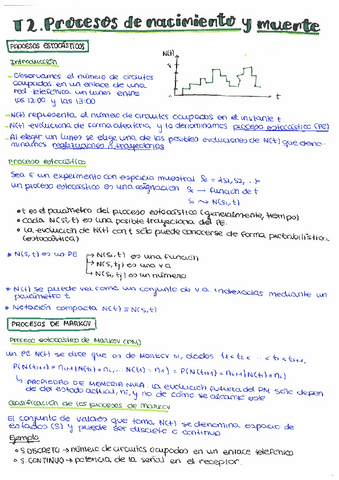 T2. Procesos de nacimiento y muerte
PROCESOS ESTOCÁSTICOS
Introducción
N(t)
t
- Observamos el número de circuitos
ocupados en un enlace de una
red telefónica un lunes entre
las 12:00 y las 13:00
- N(t) representa el número de circuitos ocupados en el instante t
- N(t) evoluciona de forma aleatoria, y lo denominamos proceso estocástico (PE)
- Al elegir un lunes se elige una de las posibles evoluciones de N(t) que deno-
minamos realizaciones o trayectorias
Proceso estocástico
Sea E un experimento con espacio muestral S = {S1, S2, ...}
un proceso estocástico es una asignación Si → función de t
Si → N(Si, t)
• t es el parámetro del proceso estocástico (generalmente, tiempo)
• cada N(Si, t) es una posible trayectoria del PE.
• La evolución de N(t) con t sólo puede conocerse de forma probabilística
(estocástica)
• N(S, t) es un PE → N(Si, t) es una función
→ N(S, tj) es una v.a
→ N(Si, tj) es un número
• N(S, t) se puede ver como un conjunto de v.a. indexadas mediante un
parámetro t
• Notación compacta N(t) ≡ N(S, t)
PROCESOS DE MARKOV
Proceso estocástico de Markov (PM)
un PE N(t) se dice que es de Markov si, dados t1 < t2 < ... < ti < ti+1,
P(N(ti+1) = ni+1 | N(ti) = ni, ... N(t1) = n1) = P(N(ti+1) = ni+1 | N(ti) = ni)
↳ PROPIEDAD DE MEMORIA NULA: La evolución futura del PM sólo depen
de del estado actual, ni, y no de cómo se alcanzó este
Clasificación de los procesos de Markov
El conjunto de valores que toma N(t) se denomina espacio de
estados (S) y puede ser discreto o continuo
Ejemplo
• S DISCRETO → número de circuitos ocupados en un enlace telefónico
• S CONTINUO → potencia de la señal en el receptor.